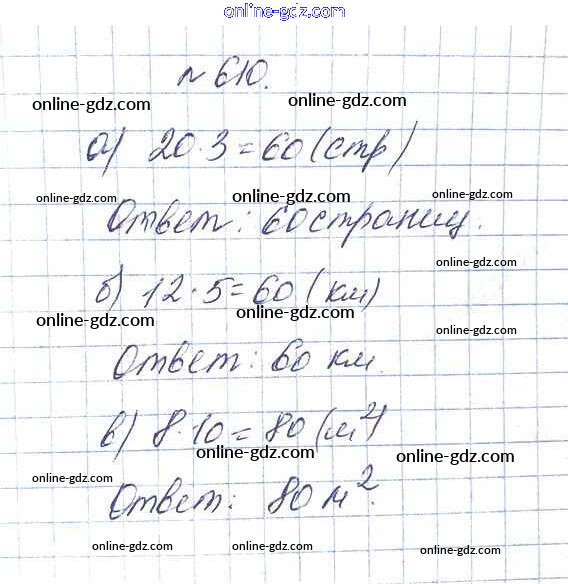 online-gdz.com
№ 610.
online-gdz.com online-gdz.com
а) 20·3=60 (стр)
online-gdz.com online-gdz.com online-gdz.com
Ответ: 60 страниц.
online-gdz.com
б) 12·5=60 (км)
online-gdz.com online-gdz.com
online-gdz.com
Ответ: 60 км.
в) 8·10=80 (м²)
online-gdz.com online-gdz.com online-gdz.com
Ответ: 80 м².
online-gdz.com online-gdz.com online-gdz.com